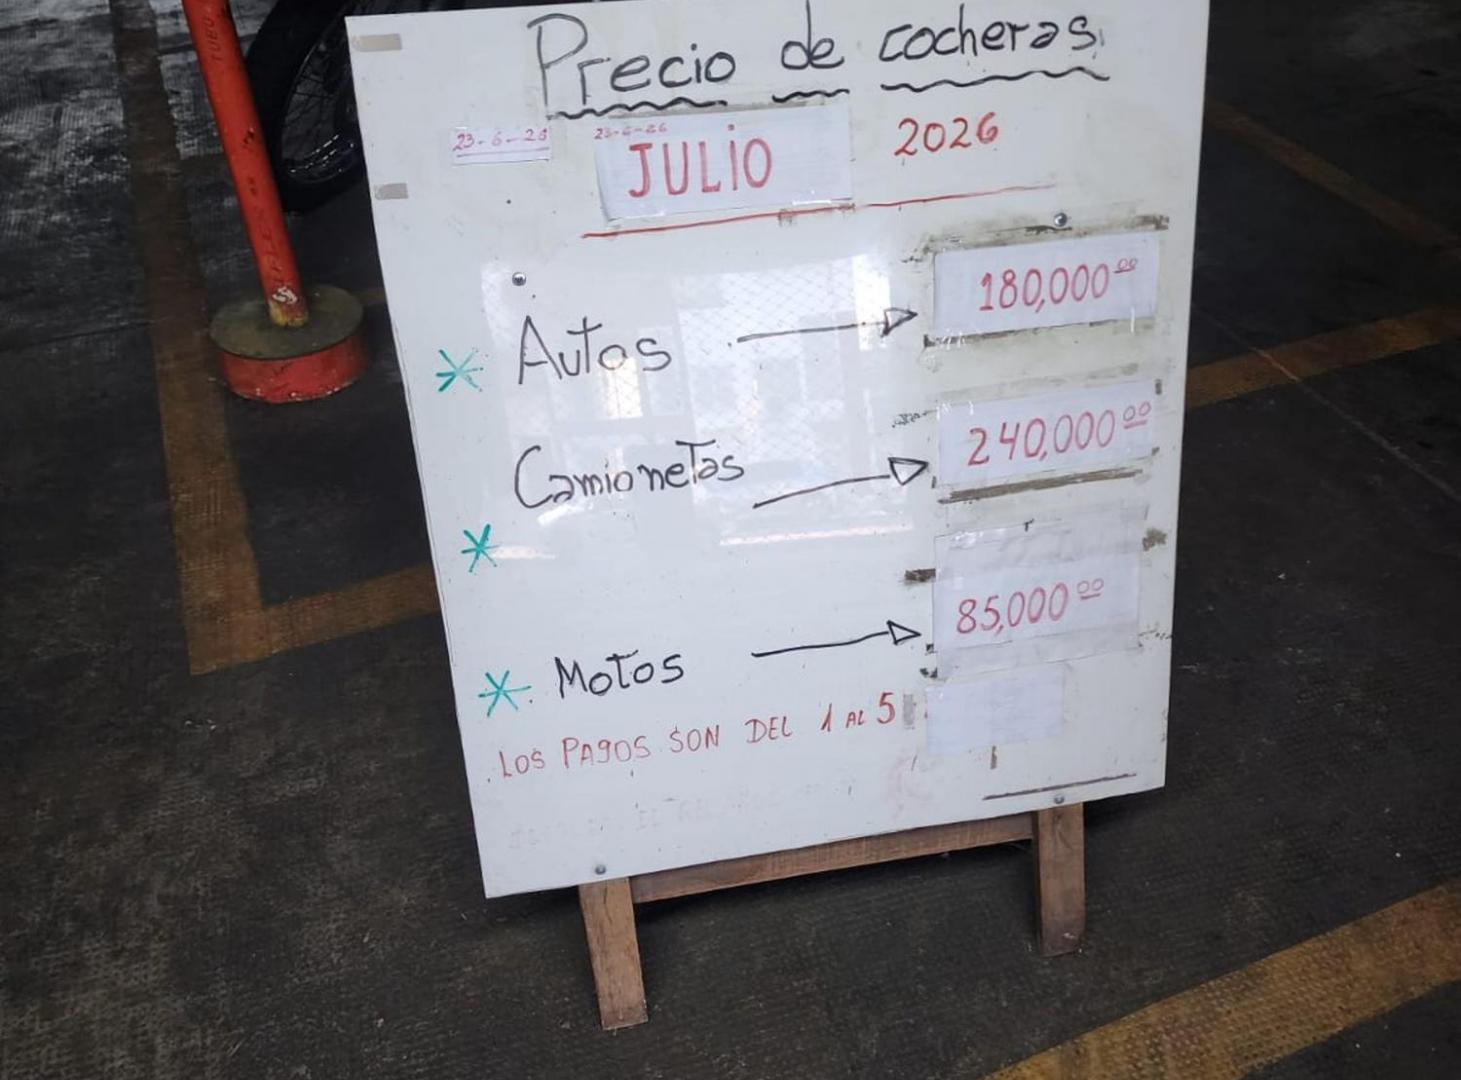 Precio de cocheras
23-6-26 23-6-26
JULIO 2026
Autos 180,000.00
Camionetas 240,000.00
Motos 85,000.00
LOS PAGOS SON DEL 1 AL 5